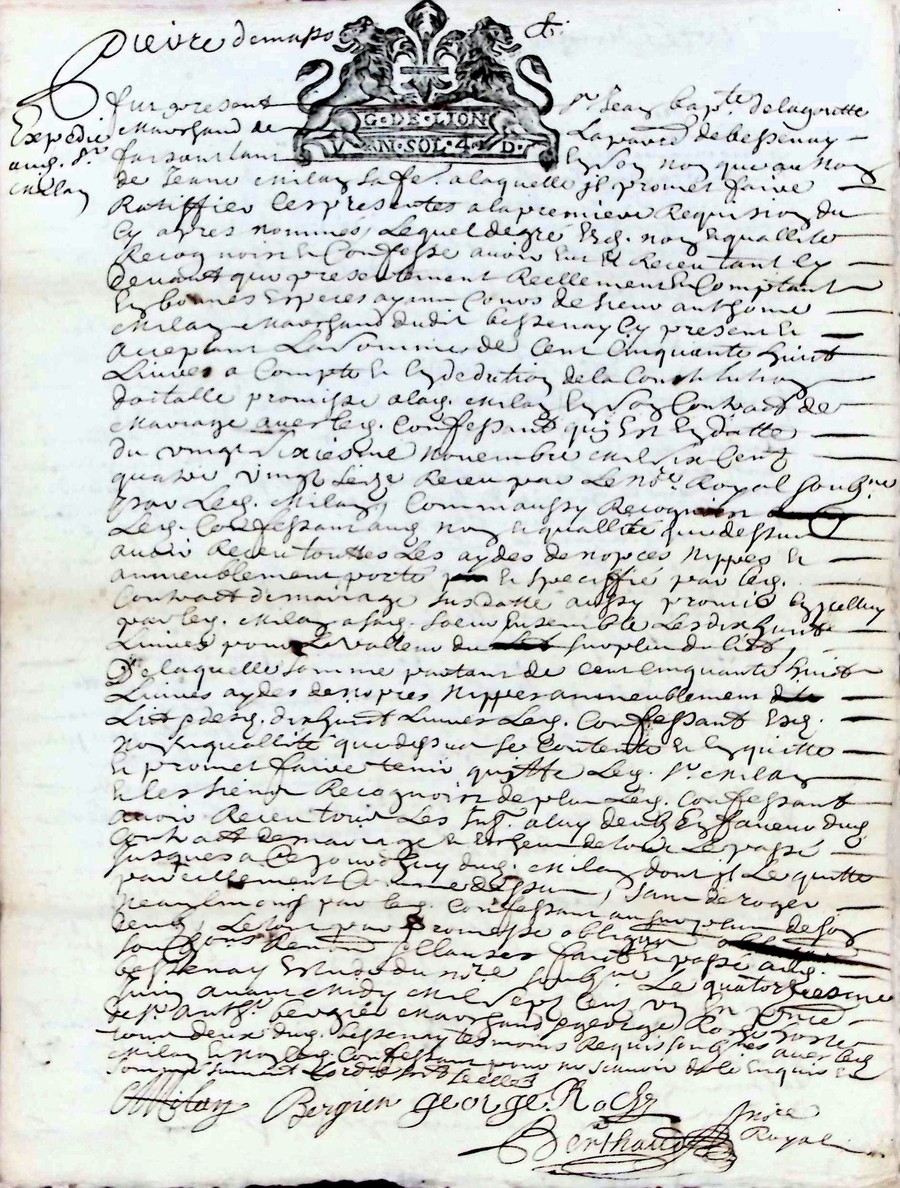 pierre demasso
G·DE·LION
V·N·SOL·4·D·
Expedié
aud. Sr
Milan
fut present Sr Jean bapte delagoutte
Marchand de Laparre de bessenay
faisant tant En son nom que au nom
de Jeanne Milan sa fe. alaquelle jl promet faire
Ratiffier les presentes alapremiere Requision du
Cy apres nommés Lequel degré Esd. nom Enquallité
Recognoist & Confesse avoir Eut & Receu tant Cy
devant que presentement Reellement & Comptant
En bonnes Especes ayant Cours de sieur anthoine
Milan Marchand dudit bessenay Cy present &
acceptant La somme de Cent Cinquante huict
Livres a Compte & En dedution de la Constitution
dotalle promise alad. Milan En son Contract de
Mariage avec led. Confessant qui Est En datte
du vingt sixiesme novembre Mil six Cent
quatre vingt seize Receu par Le Nore Royal soubne
par Led. Milan, Comm aussy Recognoist
Led. Confessant aud. nom & quallité que dessus
avoir Receu touttes Les aydes de nopces nippes &
ammeublement porté & speciffié par led.
Contract de mariage susdatte aussy promis
par led. Milan a sad. soeur Ensemble Les dix huict
Livres pour La valleur du surplus du lict,
De laquelle somme partant de cent cinquante huict
Livres aydes de nopces nippes ammeublement
Lict & desd. dixhuict Livres Led. Confessant Esd.
nom & quallité que dessus se Contente & En quitte
& promet faire tenir quitte Led. Sr Milan
& les siens Recognoist de plus Led. Confessant
avoir Receu tous Les a luy deubs En faveur dud.
Contract de mariage & Le passé
jusques a Ce jourdhuy dud. Milan dont jl Les quitte
pareillement Comme dessus, sans deroger
neaulmoins par led. Confessant au surplus de son
deub, promesse obligon
soubmons Renons & clauses fait & passé aud.
bessenay Estude du nore soubne Le quatorziesme
juin avant Midy Mil sept Cent un En pnce
de Sr Anthe bergier Marchand & george Rochy
tous deux dud. bessenay tesmoins Requis soubnés avec led.
Milan & non led. Confessant pour ne sçavoir de ce Enquis &
CMilan Bergier george Rochy
Berthaud nore
Royal